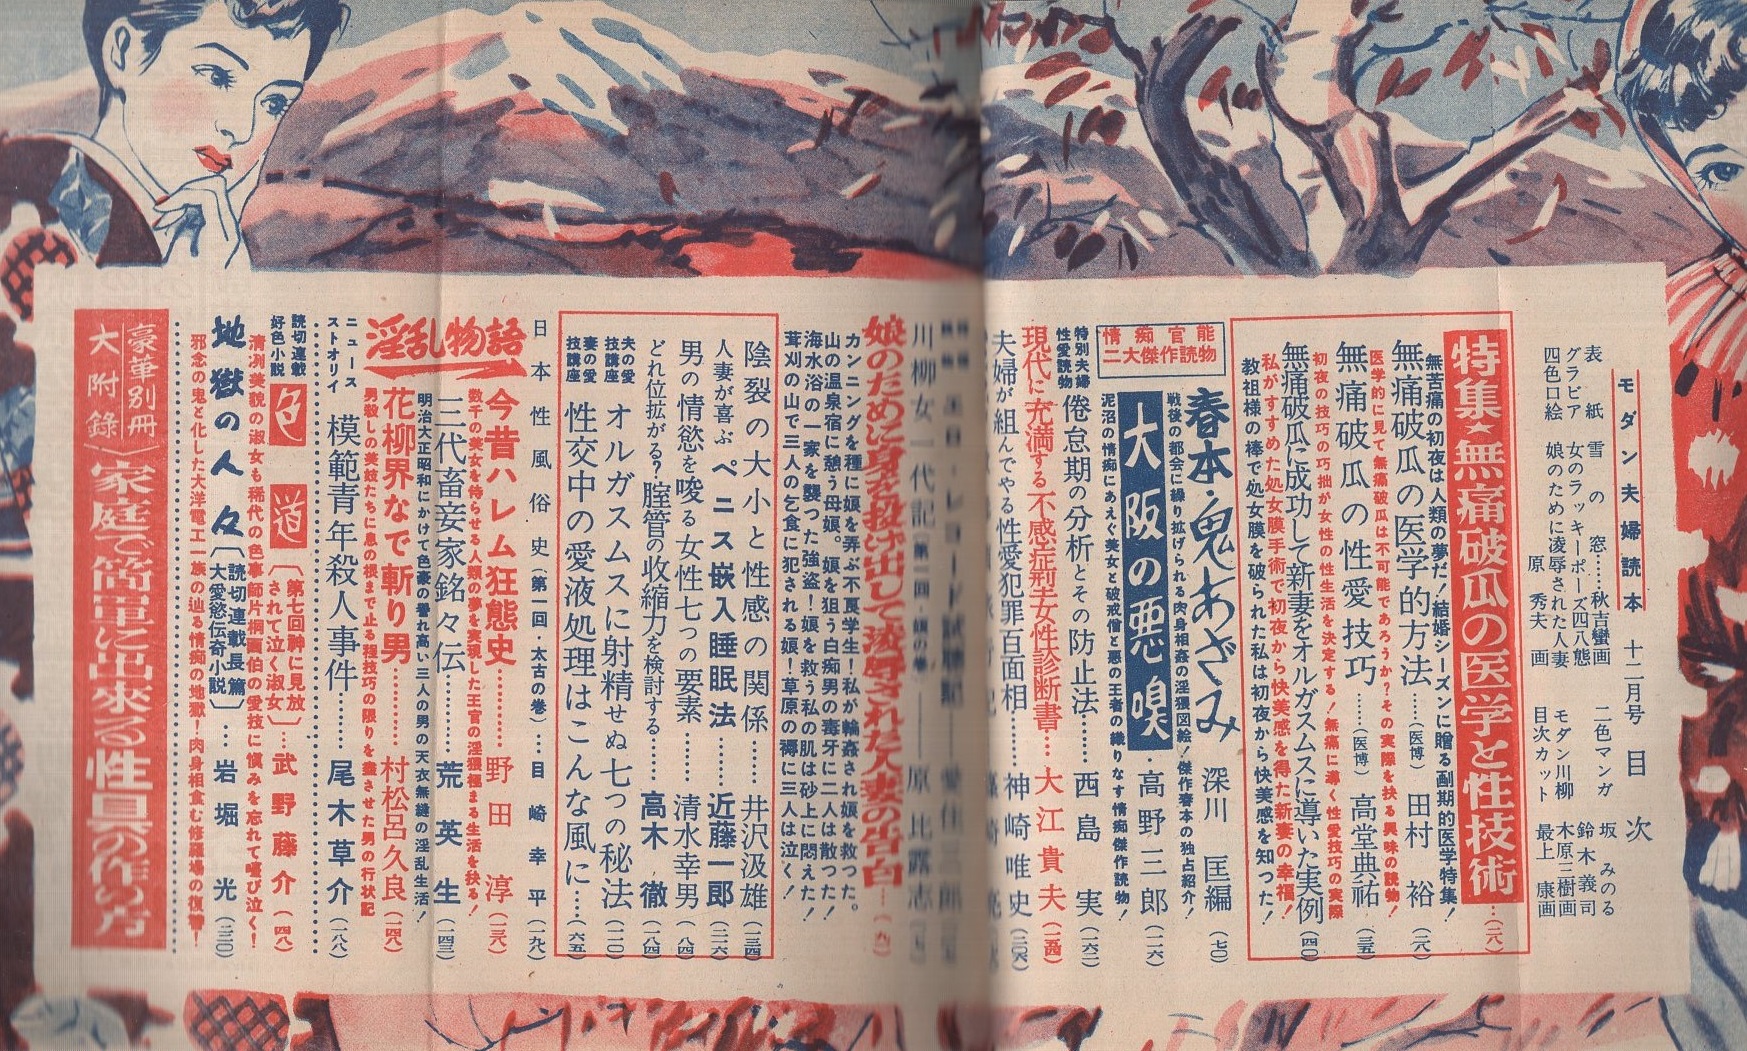 モダン夫婦読本 十二月号 目次
表紙 雪の窓……秋吉蠻画
グラビア 女のラッキーポーズ四八態
四色口絵 娘のために凌辱された人妻
原秀夫画
二色マンガ 坂みのる
鈴木義司
モダン川柳 木原三樹画
目次カット 最上康画
特集★無痛破瓜の医学と性技術…(二八)
無苦痛の初夜は人類の夢だ!結婚シーズンに贈る副期的医学特集!
無痛破瓜の医学的方法……(医博) 田村裕(二八)
医学的に見て無痛破瓜は不可能であろうか?その実際を抉る異味の読物!
無痛破瓜の性愛技巧……(医博) 高堂典祐(三五)
初夜の技巧の巧拙が女性の性生活を決定する!無痛に導く性愛技巧の実際
無痛破瓜に成功して新妻をオルガスムスに導いた実例(四〇)
私がすすめた処女膜手術で初夜から快美感を得た新妻の幸福!
教祖様の棒で処女膜を破られた私は初夜から快美感を知った!
情痴官能二大傑作読物
春本・鬼あざみ 深川匡編(七〇)
戦後の都会に繰り拡げられる肉身相姦の淫猥図絵!傑作春本の独占紹介!
大阪の悪嗅 高野三郎(一一六)
泥沼の情痴にあえぐ美女と破戒僧と悪の王者の織りなす情痴傑作読物!
特別夫婦性愛読物 倦怠期の分析とその防止法…… 西島実(一六二)
現代に充満する不感症型女性診断書… 大江貴夫(一五四)
夫婦が組んでやる性愛犯罪百面相…… 神崎唯史(二〇六)
川柳女一代記(第一回・娘の巻) 原比露志
娘のために身を投げ出して凌辱された人妻の告白…(九一)
カンニングを種に娘を弄ぶ不良学生!私が輪姦され娘を救った。
山の温泉宿に憩う母娘。娘を狙う白痴男の毒牙に二人は散った!
海水浴の一家を襲った強盗!娘を救う私の肌は砂上に悶えた!
茸刈の山で三人の乞食に犯される娘!草原の褥に三人は泣く!
陰裂の大小と性感の関係…… 井沢汲雄(一三四)
人妻が喜ぶ ペニス嵌入睡眠法…… 近藤一郎(二一六)
男の情慾を唆る女性七つの要素…… 清水幸男(八四)
どれ位拡がる?膣管の収縮力を検討する…… 高木徹(一八四)
夫の愛技講座 オルガスムスに射精せぬ七つの秘法(一一〇)
妻の愛技講座 性交中の愛液処理はこんな風に…(六五)
日本性風俗史(第一回・太古の巻)… 目崎幸平(一九八)
淫乱物語
今昔ハレム狂態史…… 野田淳(一三八)
数千の美女を侍らせる人類の夢を実現した王宮の淫猥極まる生活を抉る!
三代畜妾家銘々伝…… 荒英生(一四三)
明治大正昭和にかけて色豪の誉れ高い三人の男の天衣無縫の淫乱生活!
花柳界なで斬り男…… 村松呂久良(一四八)
男殺しの美妓たちに息の根まで止る程技巧の限りを盡させた男の行状記
ニュースストオリイ 模範青年殺人事件…… 尾木草介(一八八)
読切連載好色小説 色道〔第七回神に見放されて泣く淑女〕… 武野藤介(四八)
清冽美貌の淑女も稀代の色事師片桐画伯の愛技に慎みを忘れて噎び泣く!
地獄の人々〔読切連載長篇大愛慾伝奇小説〕… 岩堀光(二二〇)
邪念の鬼と化した大洋電工一族の辿る情痴の地獄!肉身相食む修羅場の復讐!
豪華別冊大附録 家庭で簡単に出來る性具の作り方